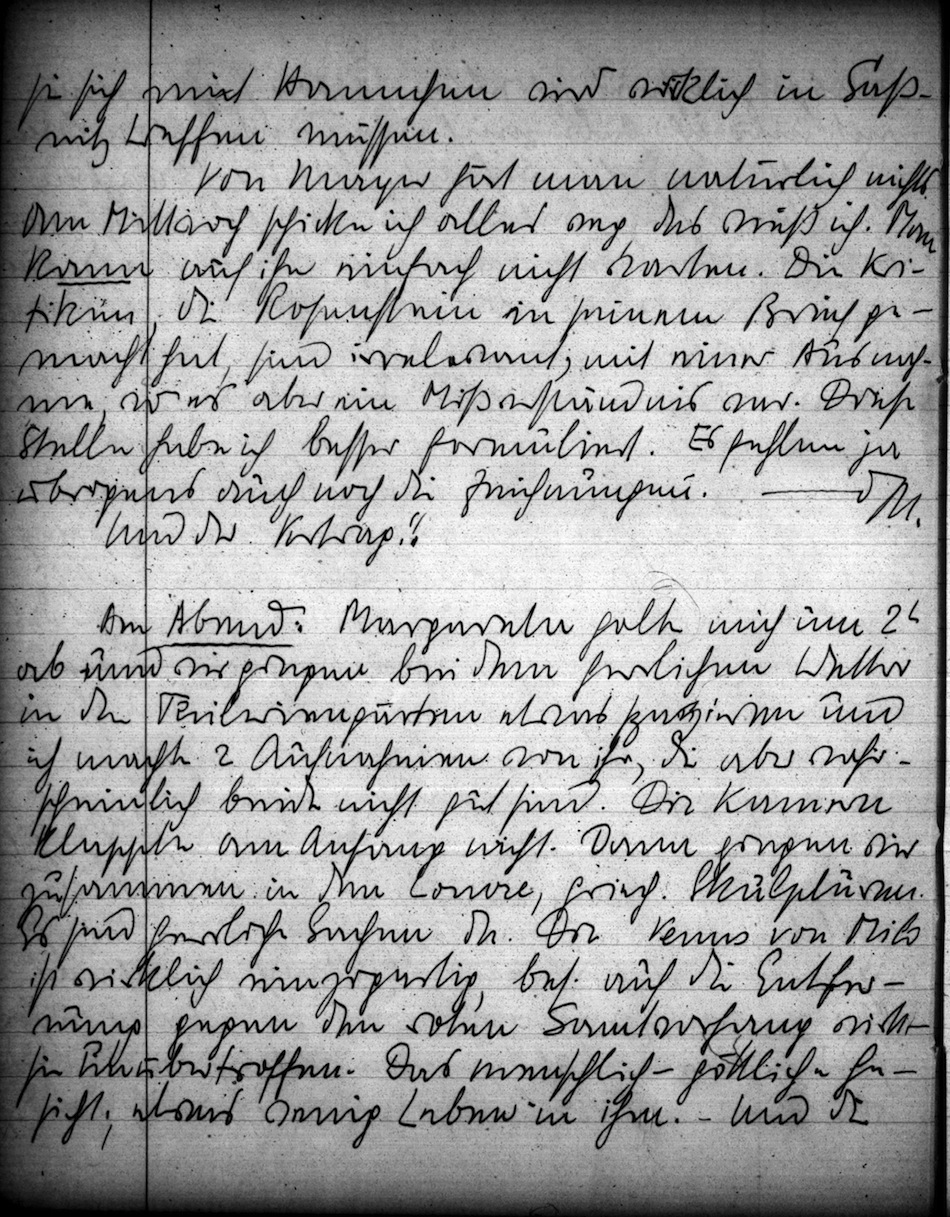 sie sich mit Hannchen wird wirklich in Saß-
nitz treffen müssen.
Von Mayer hört man natürlich nichts
Am Mittwoch schicke ich alles weg, das weiß ich. Man
kann auf ihn einfach nicht warten. Die Kri-
tiken, die Rosenstein in seinem Brief ge-
macht hat, sind irrelevant, mit einer Ausnah-
me, wo es aber ein Mißverständnis war. Diese
Stelle habe ich besser formuliert. Es fehlen ja
übrigens auch noch die Zeichnungen. ——— d M.
Und der Vertrag!!
Am Abend: Margarete holte mich um 2h
ab und wir gingen bei dem herrlichen Wetter
in den Tuileriengärten etwas spazieren und
ich machte 2 Aufnahmen von ihr, die aber wahr-
scheinlich beide nicht gut sind. Die Kamera
klappte am Anfang nicht. Dann gingen wir
zusammen in den Louvre, griech. Skulpturen.
Es sind herrliche Sachen da. Die Venus von Milo
ist wirklich einzigartig, bes. auf die Entfer-
nung gegen den roten Samtvorhang wirkt
sie unübertroffen. Das menschlich-göttliche Ge-
sicht, etwas wenig Leben in ihm. - Und die